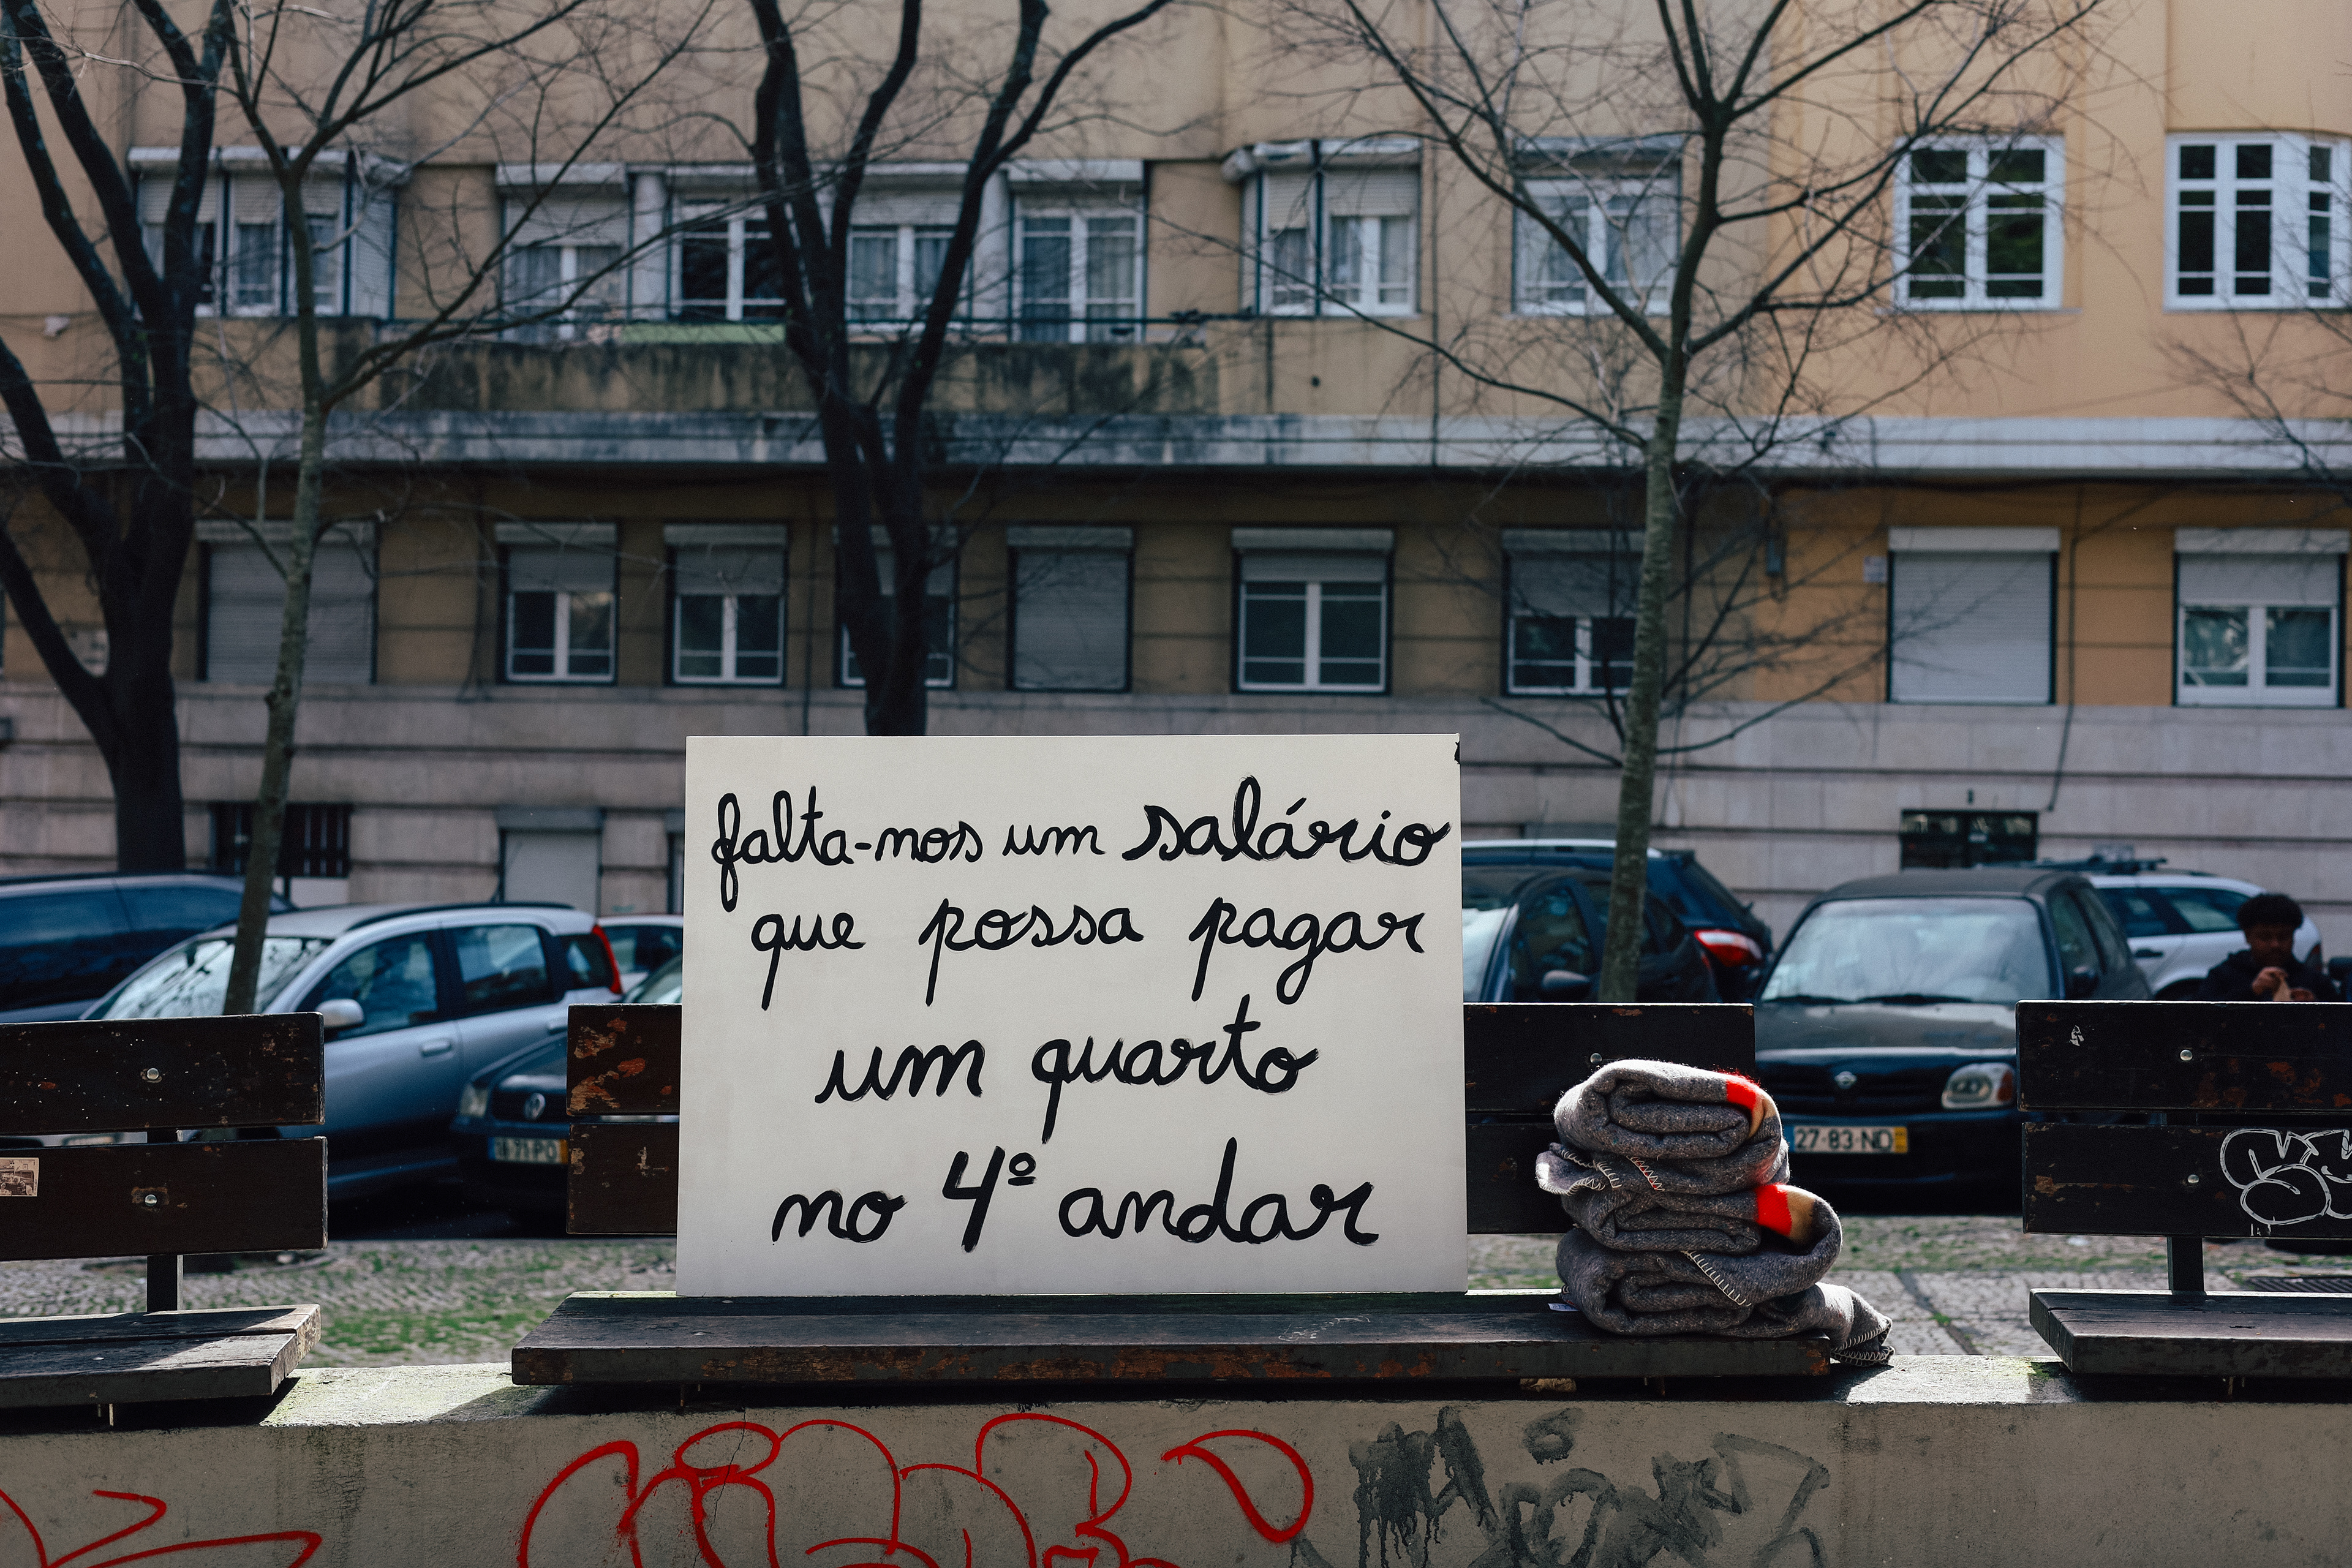 falta-nos um salário
que possa pagar
um quarto
no 4º andar
27-83-ND